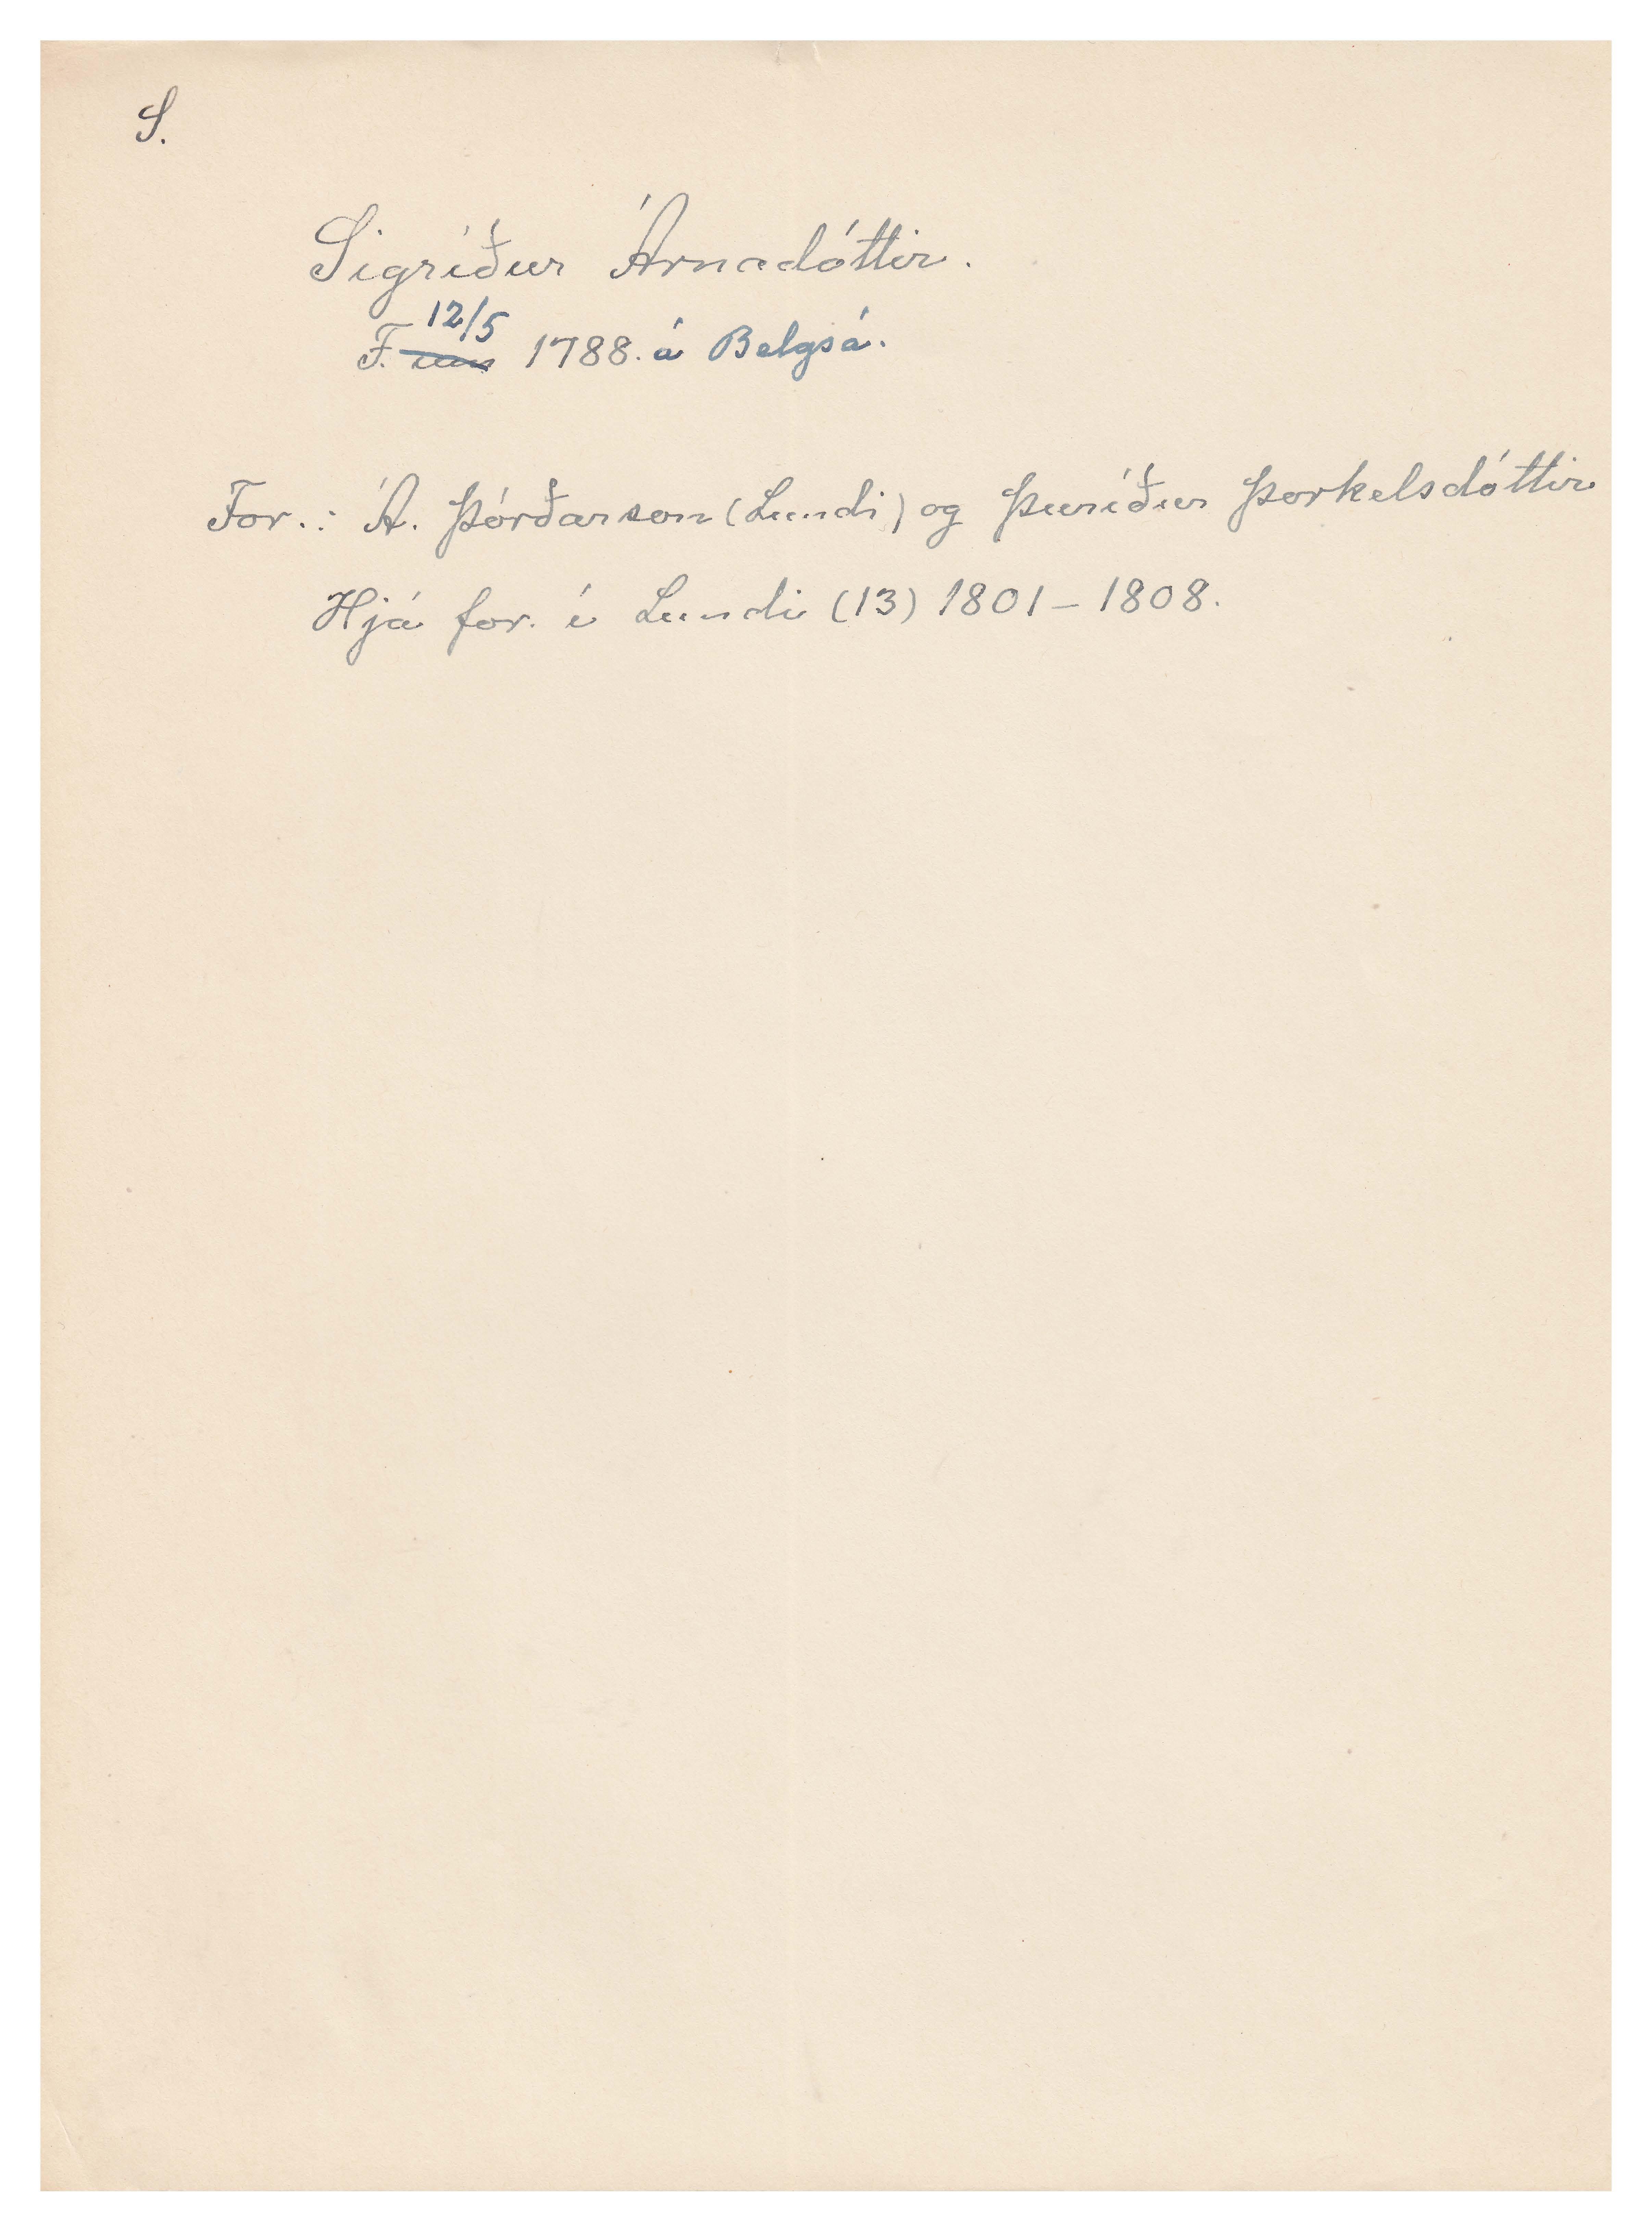 S.
Sigríður Árnadóttir.
12/5
F. um 1788. á Belgsá.
For.: Á. Þórðarson (Lundi) og Þuríður Þorkelsdóttir
Hjá for. í Lundi (13) 1801 – 1808.